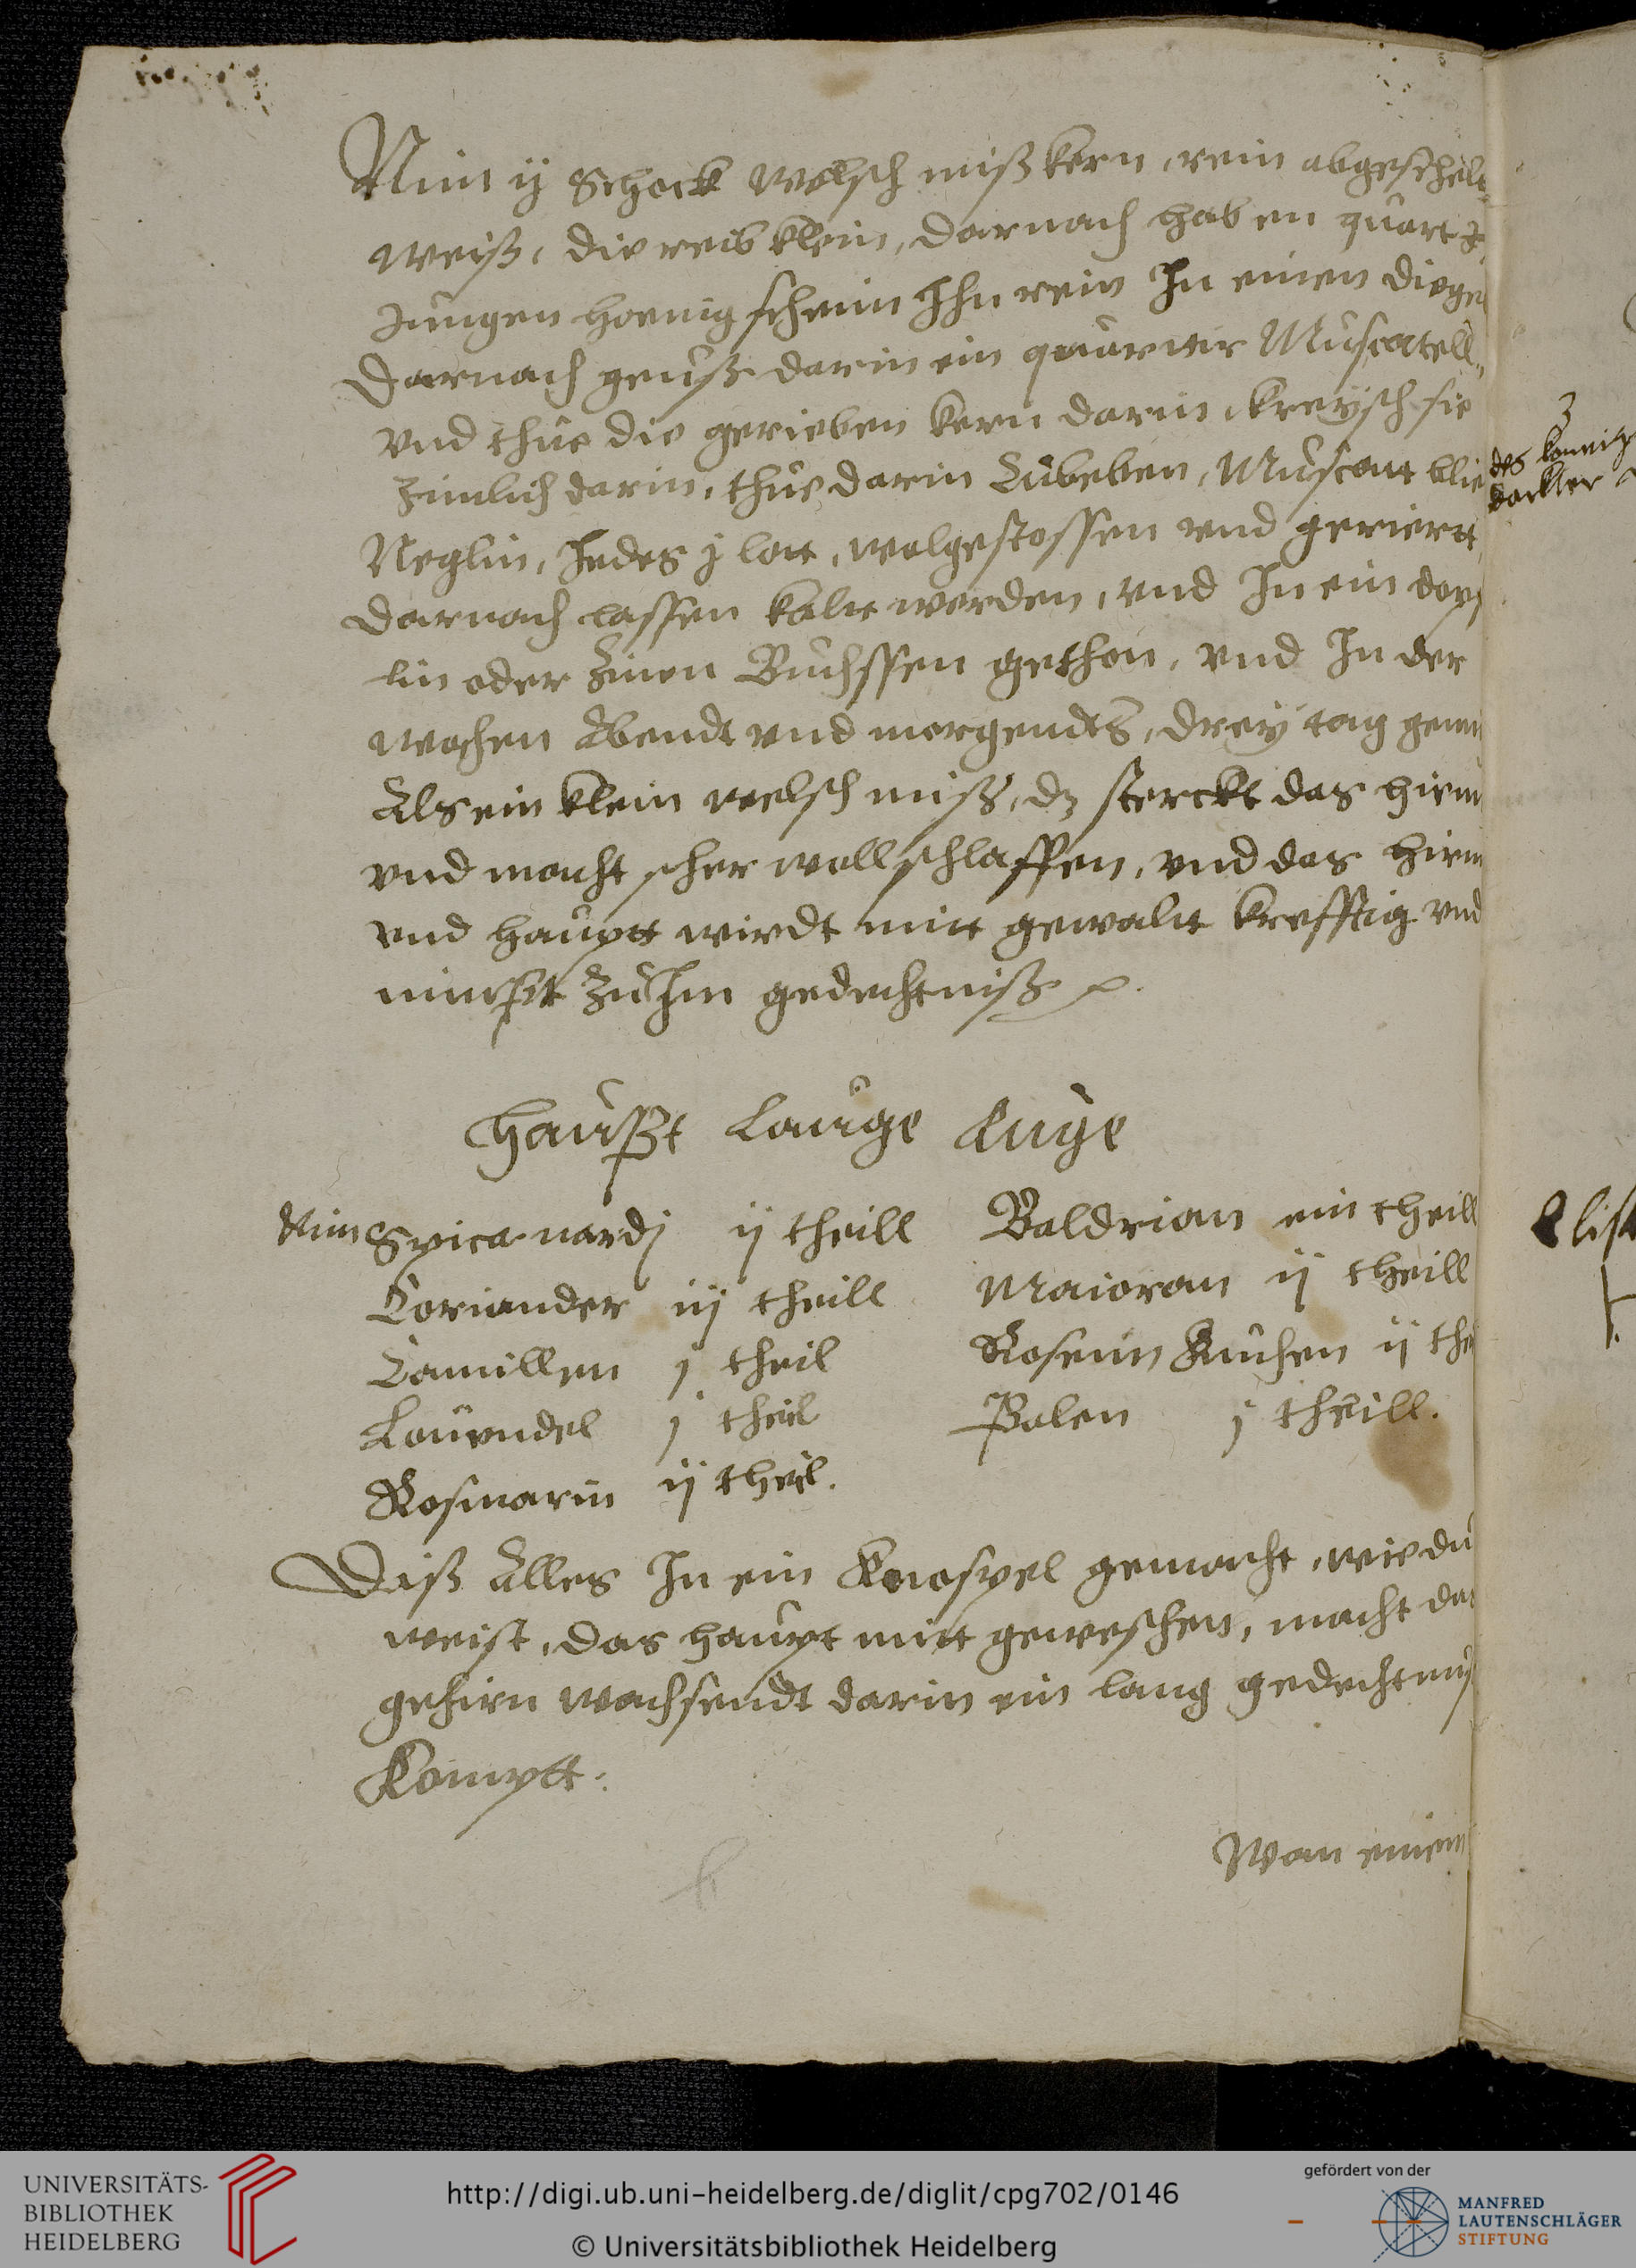 Nim ij Schock Welsch nuß kern, rein abgeschelt
weiß, die reib klein, darnach hab en quart
Jungen hoenig scheim Jhn rein Jn einen diegel
Darnach geuß darin ein quartir Muscatell
vnd thue die gerieben kern darin, kreysch sie
Zimlich darin, thue darin Cubeben, Muscatt blie
Neglin, Jedes j lott, wolgestossen vnd geriertt
Darnach lassen kaltt werden, vnd Jn ein
lin oder Zinen Buchssen gethon, vnd Jn der
wochen Abendt vnd morgendts, drey tag
Als ein klein welsch nuß, dz sterckt das hirn
vnd macht seher woll schlaffen, vnd das hirn
vnd hauptt wirdt mitt gewaltt krefftig vnd
nimptt Zu Jm gedechtniß
Haupt Lauge Luge
Nim Spica nardj ij theill Baldrian ein theill
Coriander iij theill Maioran ij theill
Camillen j theil Rosenn Kuchen ij thei
Lauendel j theil Polen j theill.
Rosmarin ij theil.
Diß Alles Jn ein Knospel gemacht, wie du
weist, das haupt mitt geweschen, macht das
gehirn wachsendt darin ein lang gedechtnuß
Komptt:
Wan einem
des
UNIVERSITÄTS-
BIBLIOTHEK
HEIDELBERG
http://digi.ub.uni-heidelberg.de/diglit/cpg702/0146
© Universitätsbibliothek Heidelberg
gefördert von der
MANFRED
LAUTENSCHLÄGER
STIFTUNG